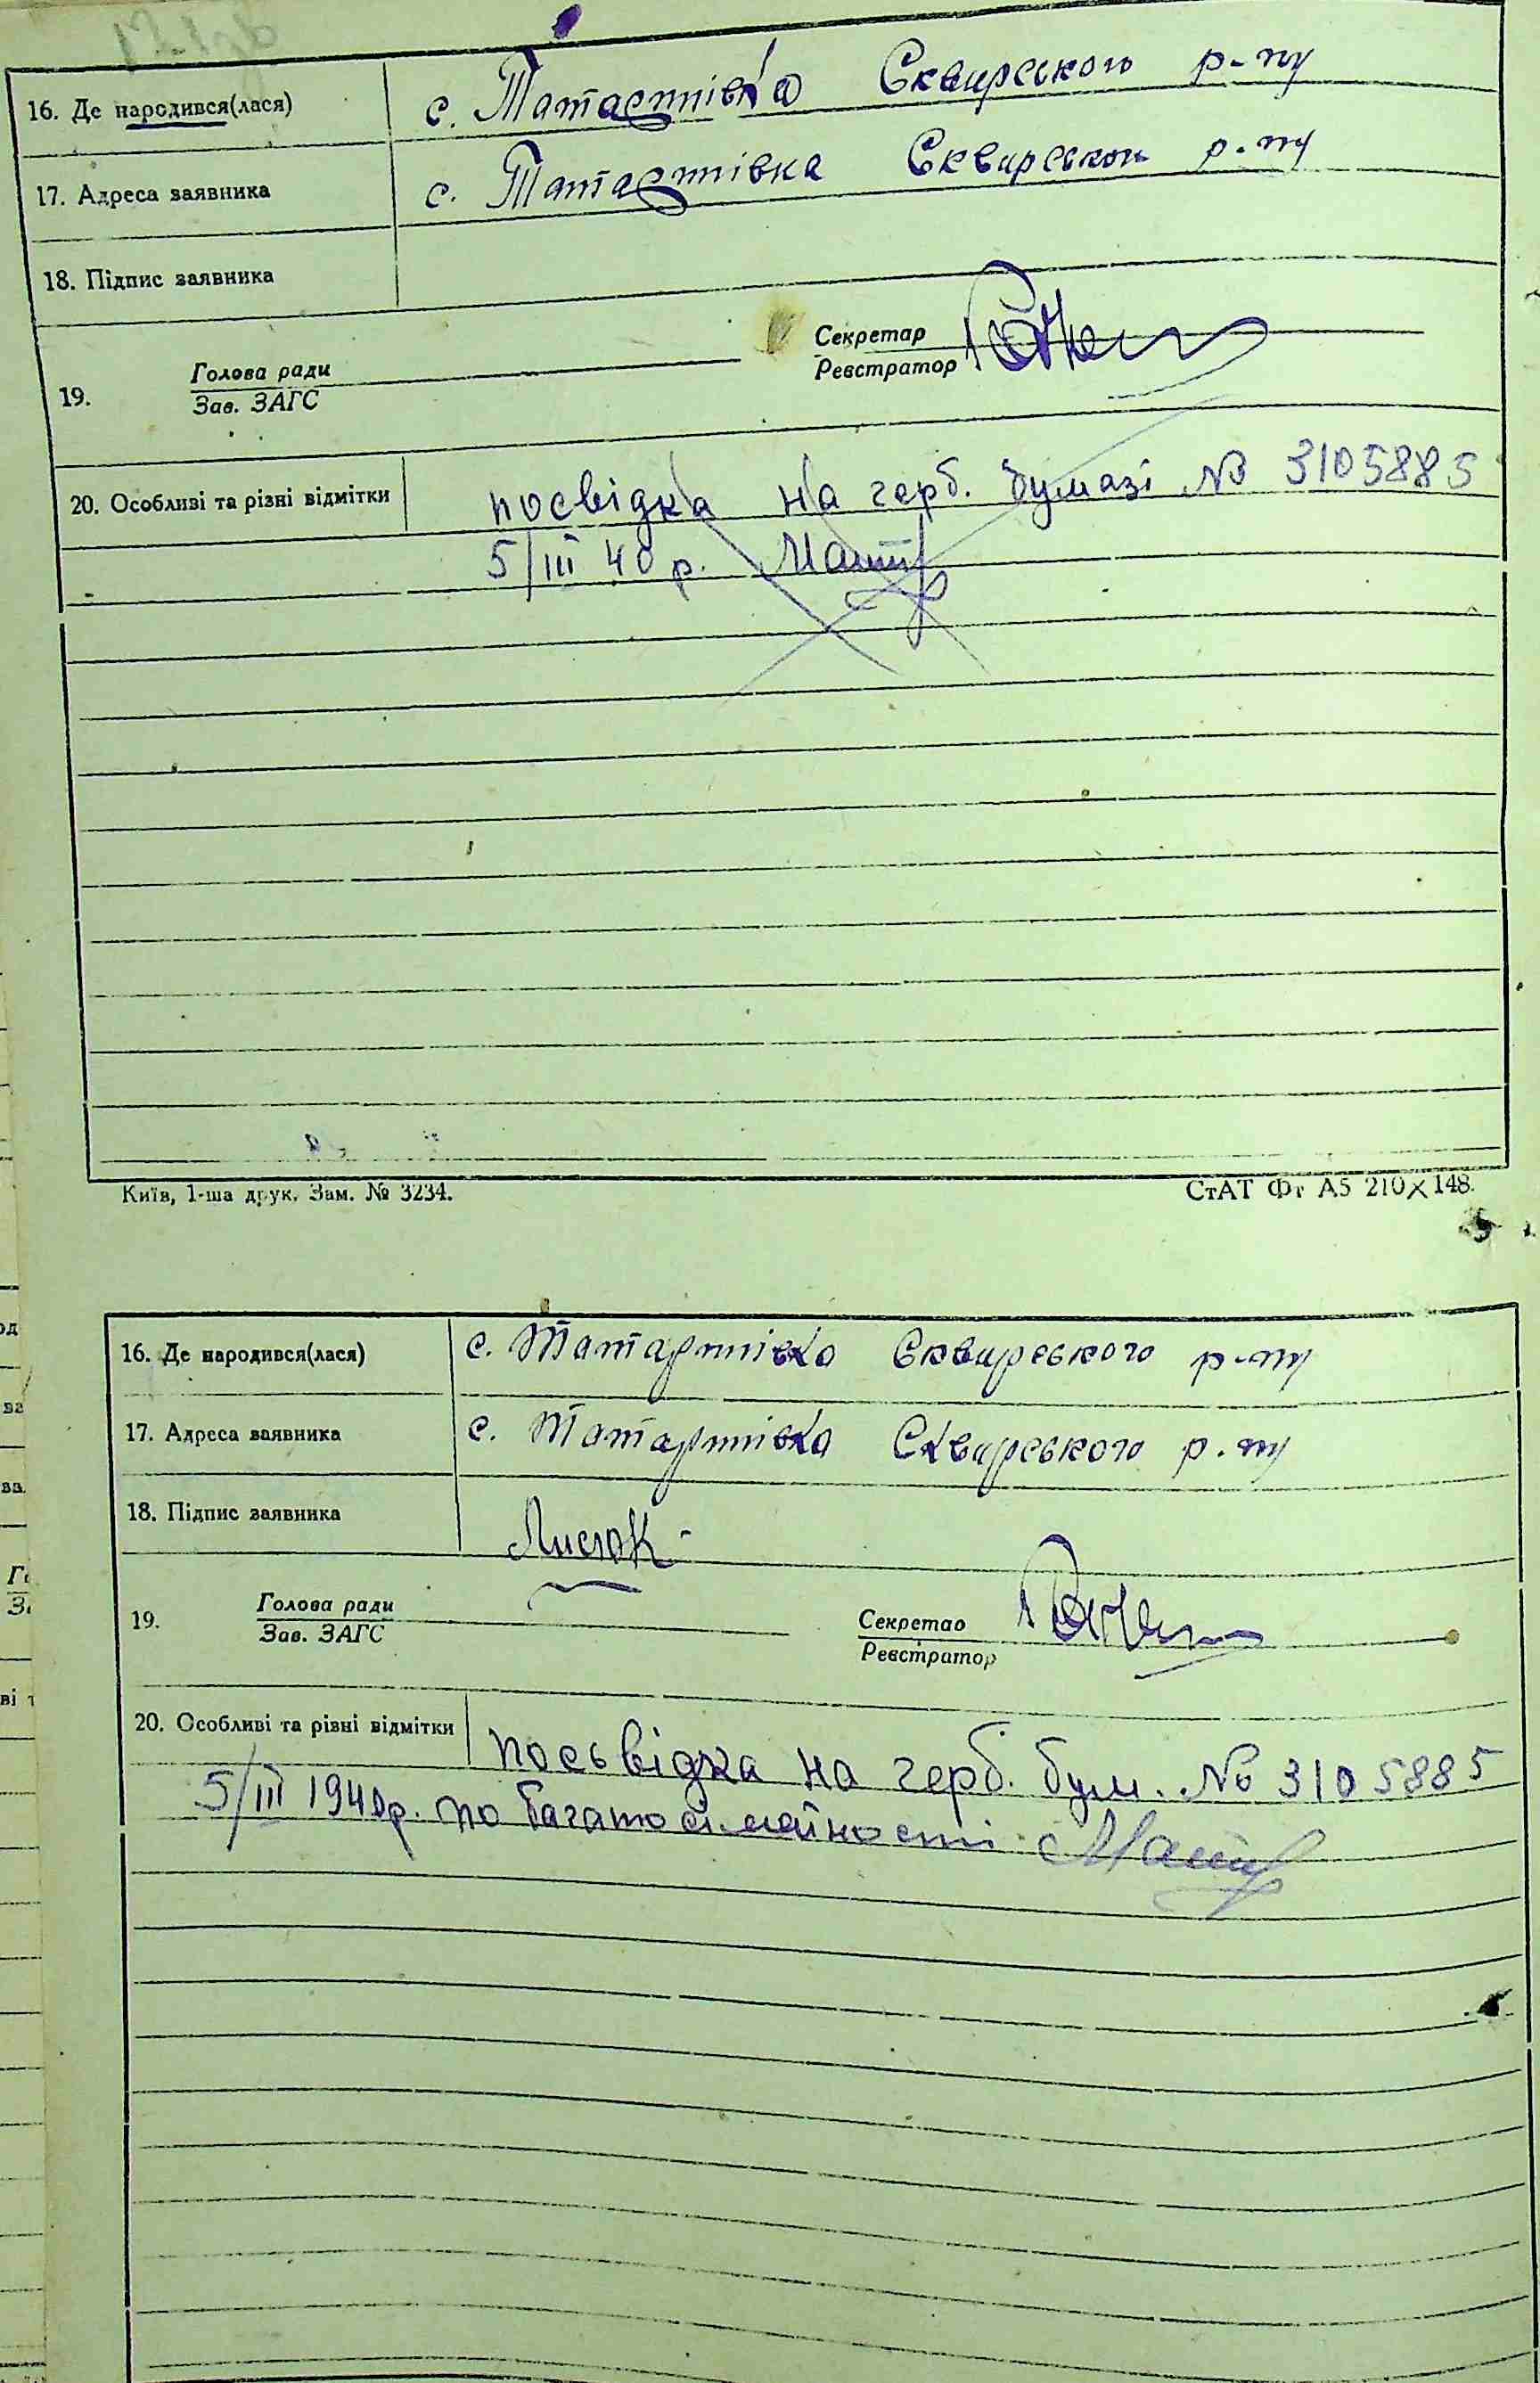 16. Де народився(лася) с. Татарчівка Сквирського р-ну
17. Адреса заявника с. Татарчівка Сквирського р-ну
18. Підпис заявника
Секретар
Реєстратор
19. Голова ради
Зав. ЗАГС
20. Особливі та різні відмітки посвідка на герб. бумазі № 3105885
5/III 40 р.
Київ, 1-ша друк. Зам. № 3234.
СтАТ Фт А5 210×148.
16. Де народився(лася) с. Татарчівка Сквирського р-ну
17. Адреса заявника с. Татарчівка Сквирського р-ну
18. Підпис заявника
19. Голова ради
Зав. ЗАГС
Секретар
Реєстратор
20. Особливі та різні відмітки посьвідка на герб. бум. № 3105885
5/III 1940р. по багатосімейности